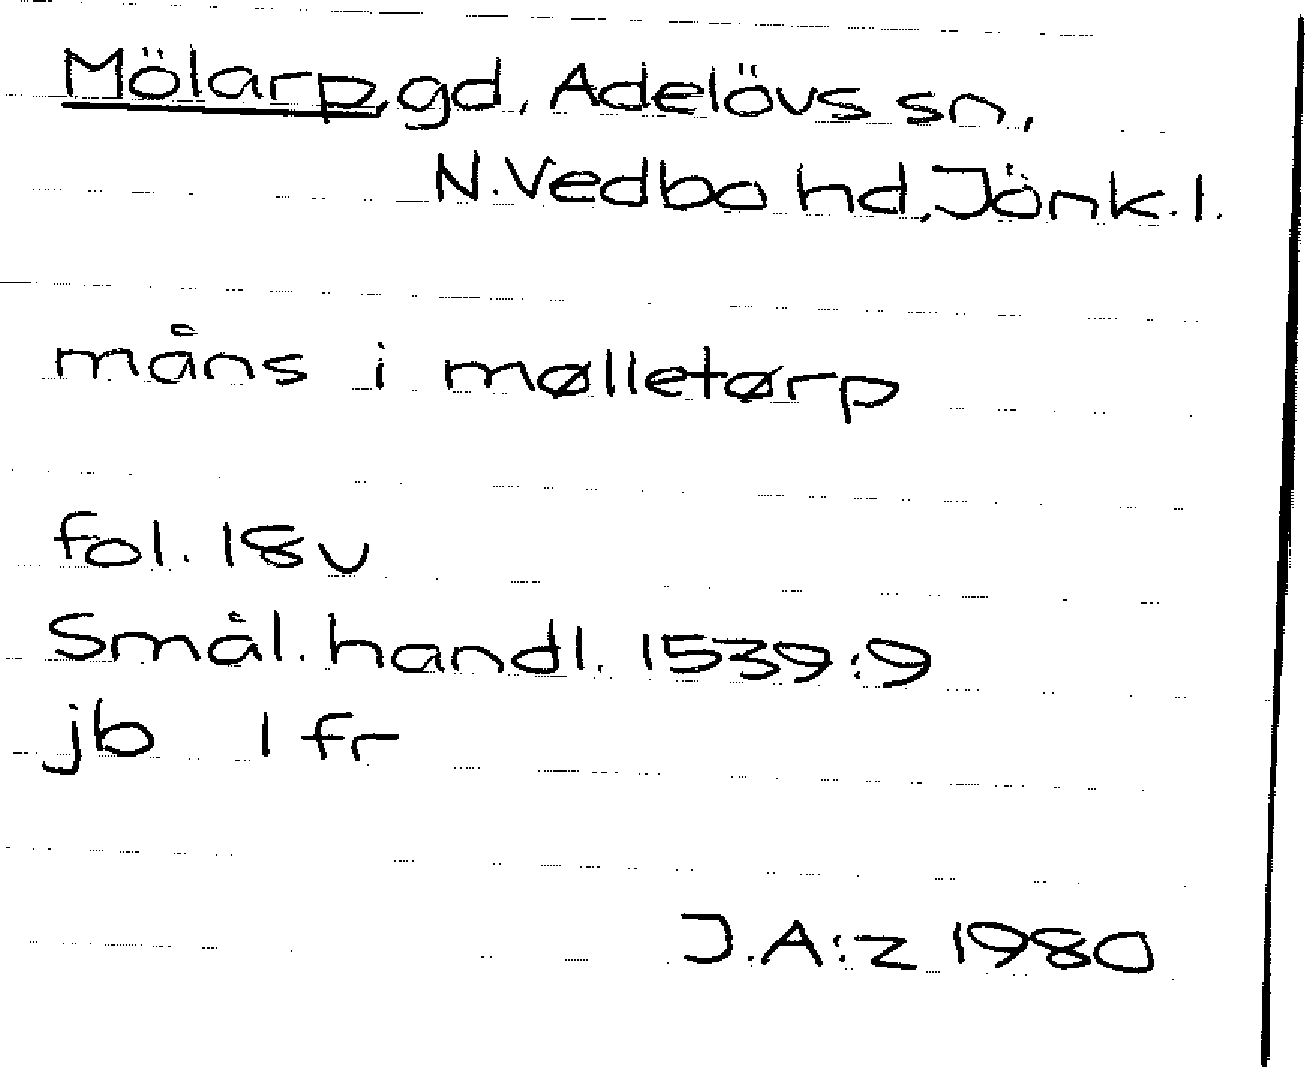 Mölarp, gd, Adelövs sn,
N. Vedbo hd, Jönk. l.
måns i mølletørp
fol. 18 v
Smål. handl. 1539:9
jb 1 fr
J.A:z 1980